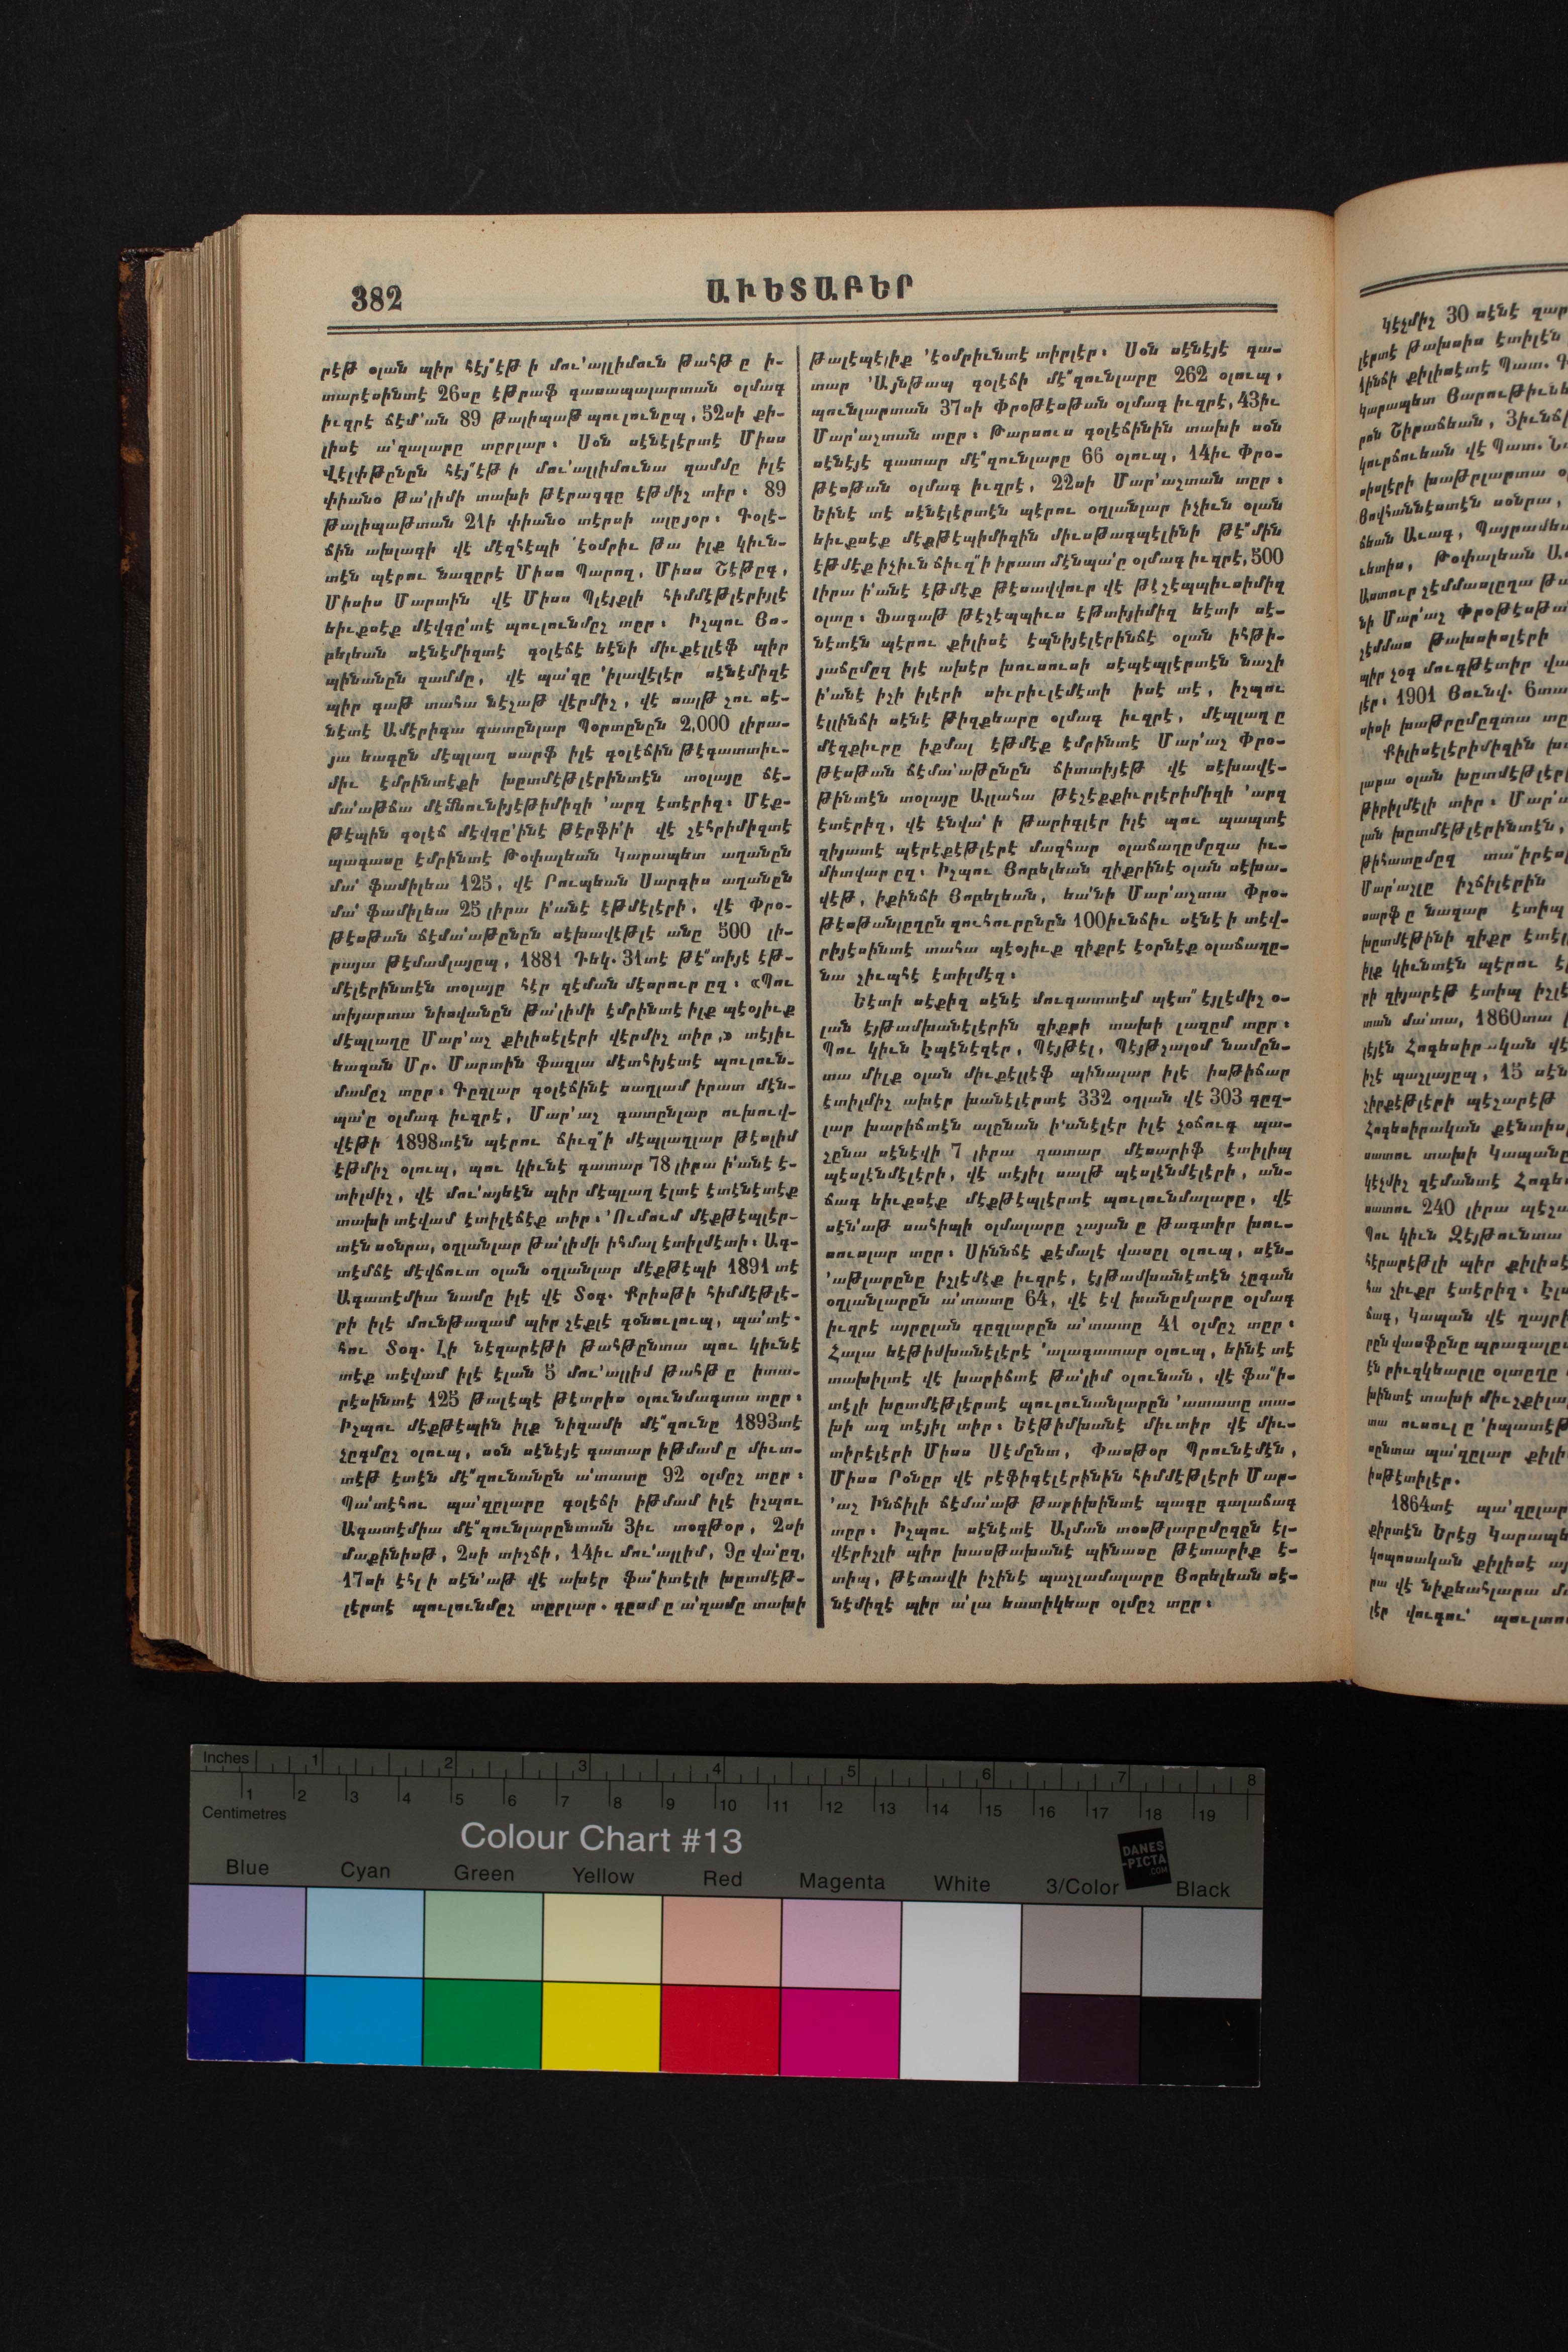 382
ԱՒԵՏԱԲԵՐ
րէթ օլան պիր հէյ՚էթ ի մու՚ալլիմուն թահթ ը ի-
տարէսինտէ 26սը էթրաֆ գասապալարտան օլմագ
իւզրէ ճէմ՚ան 89 թալիպաթ պուլունըպ, 52սի քի-
լիսէ ա՚զալարը տըրլար։ Սօն սէնէլէրտէ Միսս
Վէլփթընըն հէյ՚էթ ի մու՚ալլիմունա զամմը իլէ
փիանօ թա՚լիմի տախի թէրագգը էթմիշ տիր։ 89
թալիպաթտան 21ի փիանօ տէրսի ալըյօր։ Գօլէ-
ճին ախլագի վէ մէզհէպի ՚էօմրիւ թա իլք կիւն-
տէն պէրու նազըրէ Միսս Պարող, Միսս Շէթըգ,
Միսիս Մարտին վէ Միսս Պլէյքլի հիմմէթլէրիյլէ
եիւքսէք մէվգը՚տէ պուլունմըշ տըր։ Իշպու Յո-
բելեան սէնէմիզտէ գօլէճէ եէնի միւքէլլէֆ պիր
պինանըն զամմը, վէ պա՚զը ՚իլավէլէր սէնէմիզէ
պիր գաթ տահա նէշաթ վէրմիշ, վէ սալթ շու սէ-
նէտէ Ամէրիգա գատընլար Պօրտընըն 2,000 լիրա-
յա եագըն մէպլաղ սարֆ իլէ գօլէճին թէգատտիւ-
միւ էմրինտէքի խըտմէթլէրինտէն տօլայը ճէ-
մա՚աթճա մէմնունիյէթիմիզի ՚արզ էտէրիզ։ Մէք-
թէպին գօլէճ մէվգը՚ինէ թէրֆի՚ի վէ շէհրիմիզտէ
պագասը էմրինտէ Թօփալեան Կարապետ աղանըն
մա՚ ֆամիլեա 125, վէ Րուպեան Սարգիս աղանըն
մա՚ ֆամիլեա 25 լիրա ի՚անէ էթմէլէրի, վէ Փրօ-
թէսթան ճէմա՚աթընըն սէխավէթլէ անը 500 լի-
րայա թէմամլայըպ, 1881 Դեկ. 31տէ թէ՛՛տիյէ էթ-
մէլէրինտէն տօլայը հէր զէման մէսրուր ըզ։ «Պու
տիյարտա նիսվանըն թա՚լիմի էմրինտէ իլք պէօյիւք
մէպլաղը Մար՚աշ քիլիսէլէրի վէրմիշ տիր,» տէյիւ
եազան Մր. Մարտին ֆազլա մէտհիյէտէ պուլուն-
մամըշ տըր։ Գըզլար գօլէճինէ սաղլամ իրատ մէն-
պա՚ը օլմագ իւզրէ, Մար՚աշ գատընլար ուխուվ-
վէթի 1898տէն պէրու ճիւզ՛՛ի մէպլաղլար թէսլիմ
էթմիշ օլուպ, պու կիւնէ գատար 78 լիրա ի՚անէ է-
տիլմիշ, վէ մու՚այեէն պիր մէպլաղ էլտէ էտէնէտէք
տախի տէվամ էտիլէճէք տիր։ ՚Ումում մէքթէպլէր-
տէն սօնրա, օղլանլար թա՚լիմի իհմալ էտիլմէտի։ Ագ-
տէմճէ մէվճուտ օլան օղլանլար մէքթէպի 1891 տէ
Ագատէմիա նամը իլէ վէ Տօգ. Քրիսթի հիմմէթլէ-
րի իլէ մունթազամ պիր շէքլէ գօնուլուպ, պա՚տէ-
հու Տօգ. Լի նէզարէթի թահթընտա պու կիւնէ
տէք տէվամ իլէ էլան 5 մու՚ալլիմ թահթ ը իտա-
րէսինտէ 125 թալէպէ թէտրիս օլունմագտա տըր։
Իշպու մէքթէպին իլք նիզամի մէ՛՛զունը 1893տէ
չըգմըշ օլուպ, սօն սէնէյէ գատար իթմամ ը միւտ-
տէթ էտէն մէ՛՛զունանըն ա՚տատը 92 օլմըշ տըր։
Պա՚տէհու պա՚զըլարը գօլէճի իթմամ իլէ իշպու
Ագատէմիա մէ՛՛զունլարընտան 3իւ տօգթօր, 2սի
մաքինիսթ, 2սի տիշճի, 14իւ մու՚ալլիմ, 9ը վա՚ըզ,
17սի էհլ ի սէն՚աթ վէ ախէր ֆա՛՛իտէլի խըտմէթ-
լէրտէ պուլունմըշ տըրլար. գըսմ ը ա՚զամը տախի
թալէպէլիք ՚էօմրիւնտէ տիրլէր։ Սօն սէնէյէ գա-
տար ՚Այնթապ գօլէճի մէ՛՛զունլարը 262 օլուպ,
պունլարտան 37սի Փրօթէսթան օլմագ իւզրէ, 43իւ
Մար՚աշտան տըր։ Թարսուս գօլէճինին տախի սօն
սէնէյէ գատար մէ՛՛զունլարը 66 օլուպ, 14իւ Փրօ-
թէսթան օլմագ իւզրէ, 22սի Մար՚աշտան տըր։
Եինէ տէ սէնէլէրտէն պէրու օղլանլար իչիւն օլան
եիւքսէք մէքթէպիմիզին միւսթագպէլինի թէ՛՛մին
էթմէք իչիւն ճիւզ՛՛ի իրատ մէնպա՚ը օլմագ իւզրէ, 500
լիրա ի՚անէ էթմէք թէսավվուր վէ թէշէպպիւսիմիզ
օլտը։ Ֆագաթ թէշէպպիւս էթտիյիմիզ եէտի սէ-
նէտէն պէրու քիլիսէ էպնիյէլէրինճէ օլան իհթի-
յաճըմըզ իլէ ախէր խուսուսի սէպէպլէրտէն նաշի
ի՚անէ իշի իլէրի սիւրիւլէմէտի իսէ տէ, իշպու
էլլինճի սէնէ Թիզքեարը օլմագ իւզրէ, մէպլաղ ը
մէզքիւրը իքմալ էթմէք էմրինտէ Մար՚աշ Փրօ-
թէսթան ճէմա՚աթընըն ճիտտիյէթ վէ սէխավէ-
թինտէն տօլայը Ալլահա թէշէքքիւրլէրիմիզի ՚արզ
էտէրիզ, վէ էնվա՚ ի թարիգլէր իլէ պու պապտէ
զիյատէ պէրէքէթլէրէ մազհար օլաճաղըմըզա իւ-
միտվար ըզ։ Իշպու Յոբելեան զիքրինէ օլան սէխա-
վէթ, իքինճի Յոբելեան, եա՚նի Մար՚աշտա Փրօ-
թէսթանլըղըն զուհուրընըն 100իւնճիւ սէնէ ի տէվ-
րիյէսինտէ տահա պէօյիւք զիքրէ էօրնէք օլաճաղը-
նա շիւպհէ էտիլմէզ։
Եէտի սէքիզ սէնէ մուգատտէմ պէտ՛՛ էյլէմիշ օ-
լան էյթամխանէլէրին զիքրի տախի լազըմ տըր։
Պու կիւն Էպէնէզէր, Պէյթէլ, Պէյթշալօմ նամըն-
տա միլք օլան միւքէլլէֆ պինալար իլէ իսթիճար
էտիլմիշ ախէր խանէլէրտէ 332 օղլան վէ 303 գըզ-
լար խարիճտէն ալընան ի՚անէլէր իլէ չօճուգ պա-
շընա սէնէվի 7 լիրա գատար մէսարիֆ էտիլիպ
պէսլէնմէլէրի, վէ տէյիլ սալթ պէսլէնմէլէրի, ան-
ճագ եիւքսէք մէքթէպլէրտէ պուլունմալարը, վէ
սէն՚աթ սահիպի օլմալարը շայան ը թագտիր խու-
սուսլար տըր։ Սիննճէ քէմալէ վասըլ օլուպ, սէն-
՚աթլարընը իշլէմէք իւզրէ, էյթամխանէտէն չըգան
օղլանլարըն ա՚տատը 64, վէ էվ խանըմլարը օլմագ
իւզրէ այրըլան գըզլարըն ա՚տատը 41 օլմըշ տըր։
Հալա եէթիմխանէլէրէ ՚ալագատար օլուպ, եինէ տէ
տախիլտէ վէ խարիճտէ թա՚լիմ օլունան, վէ ֆա՛՛ի-
տէլի խըտմէթլէրտէ պուլունանլարըն ՚ատատը տա-
խի ազ տէյիլ տիր։ Եէթիմխանէ միւտիր վէ միւ-
տիրէլէրի Միսս Սէմընտ, Փասթօր Պրունէմէն,
Միսս Րօնըր վէ րէֆիգէլէրինին հիմմէթլէրի Մար-
՚աշ Ինճիլի ճէմա՚աթ թարիխինտէ պագը գալաճագ
տըր։ Իշպու սէնէտէ Ալման տօսթլարըմըզըն էլ-
վէրիշլի պիր խասթախանէ պինասը թէտարիք է-
տիպ, թէտավի իշինէ պաշլամալարը Յոբելեան սէ-
նէմիզէ պիր ա՚լա եատիկեար օլմըշ տըր։
կէչմիշ 30 սէնէ զար
լէրտէ թախսիս էտիլէն
կարապետ Յարութիւնե
րոն Շիրաճեան, 3իւնճի
Յովհաննէստէն սօնրա,
ճեան Աւագ, Պայրամեա
նի Մար՚աշ Փրօթէսթա
չէմմաս թախսիսլէրի
պիր չօգ մուգթէտիր վա
լէր։ 1901 Յունվ. 6տա
սիսի խաթըրըմըզտա տը
Քիլիսէլէրիմիզին խ
լարա օլան խըտմէթլէր
թիրիլմէլի տիր։ Մար՚ա
լան խըտմէթլէրինտէն,
Մար՚աշլը իշճիլէրին
սարֆ ը նազար էտիպ
խըտմէթինի զիքր էտէլ
իլք կիւնտէն պէրու է
րի զիյարէթ էտիպ իչլէ
տան մա՚տա, 1860տա
իչէ պաշլայըպ, 15 սէն
շիրքէթլէրի պէշարէթ
Հոգեսիրական քէնտիս
սատու տախի Կապանը
կէչմիշ զէմանտէ Հոգե
սատու 240 լիրա պէշա
Պու կիւն Զէյթունտա
հէրարէթլի պիր քիլիսէ
հա շիւքր էտէրիզ։ Էլա
ճագ, Կապան վէ ղայրի
խինտէ տախի միւշքիլա
տա ուսուլ ը ՚իպատէթ
սընտա պա՚զըլար քիլի
իսթէտիլէր.
1864տէ պա՚զըլար
քիրտէն Երէց Կարապե
կոպոսական քիլիսէ այ
րա վէ նիքեահլարա մ
լէր վուգու՚ պուլտու
Inches 1 2 3 4 5 6 7 8
1 2 3 4 5 6 7 8 9 10 11 12 13 14 15 16 17 18 19
Centimetres
Colour Chart #13
DANES
-PICTA
.COM
Blue Cyan Green Yellow Red Magenta White 3/Color Black